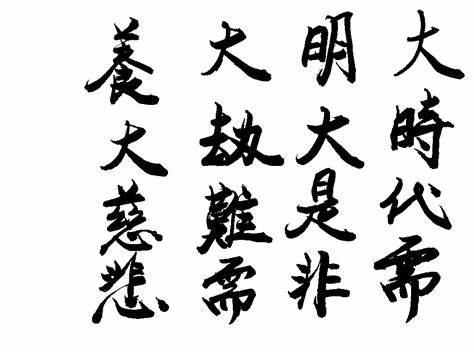 大時代需
明大是非
大劫難需
養大慈悲